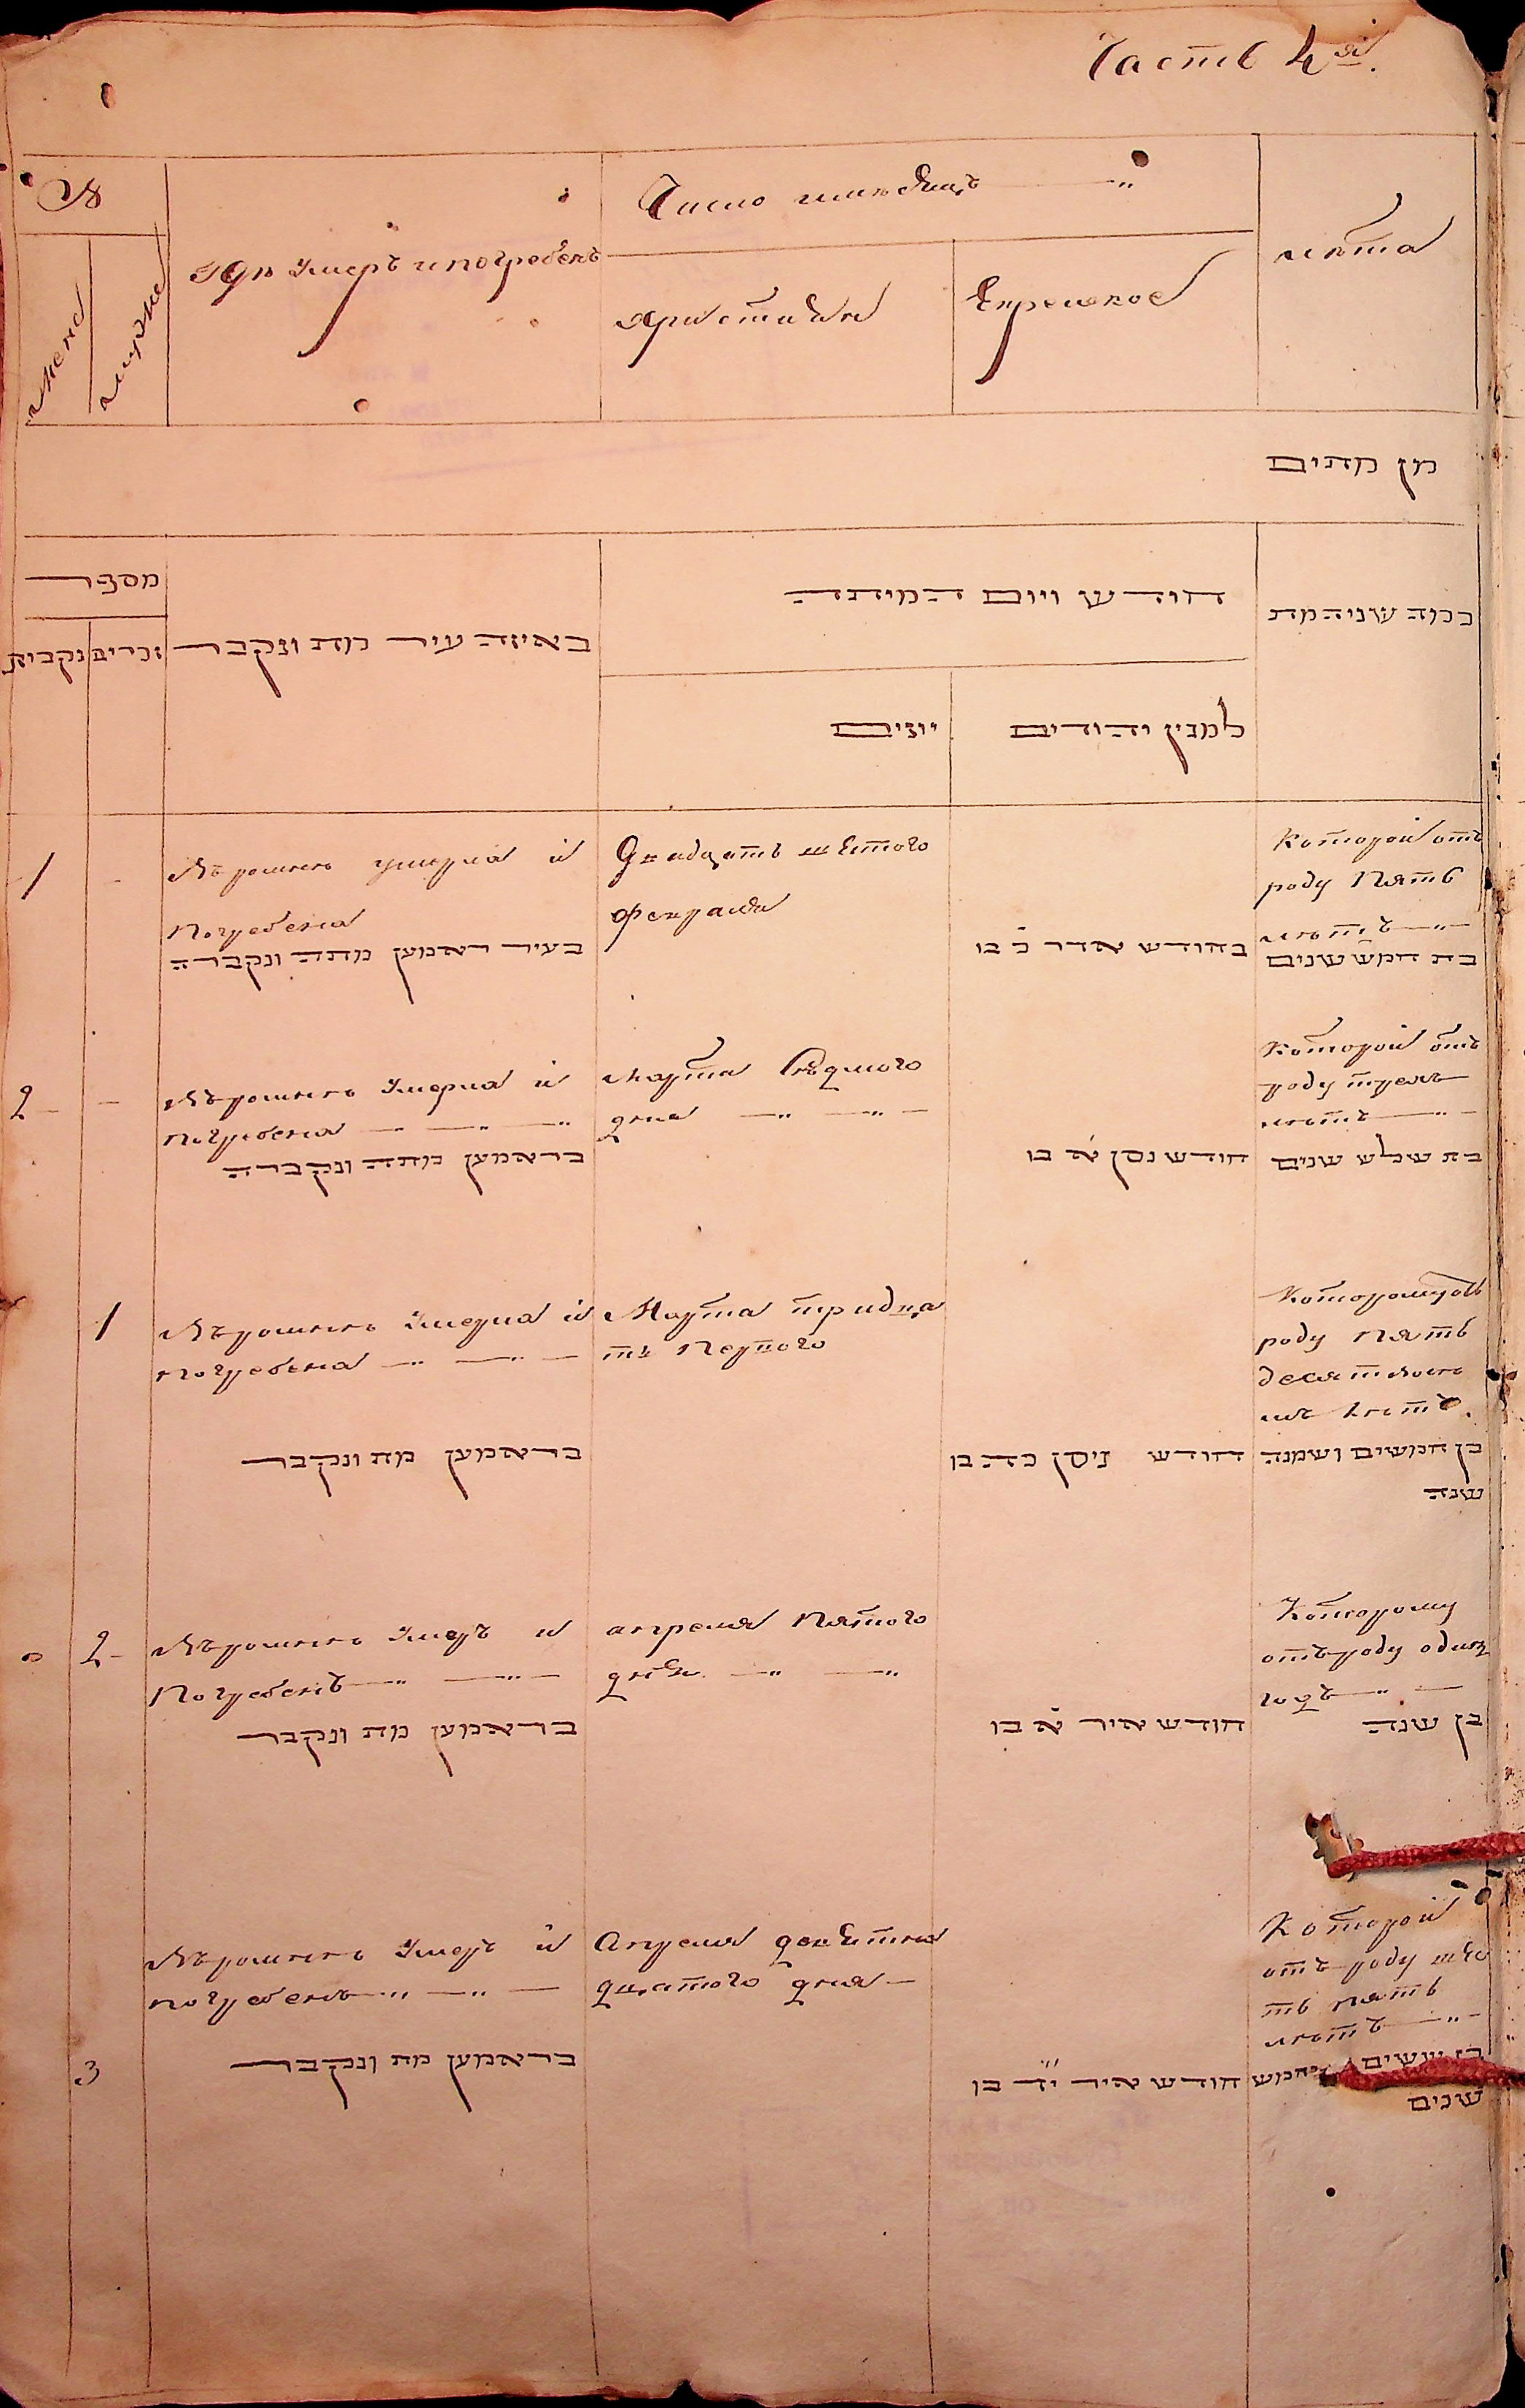 Часть 4я.
№
жене
муже
Где умеръ и погребенъ
Число и месяцъ
христиан
Еврейское
лѣта
מן מתים
מספר
נקבית
זכרים
באיזה עיר מת ונקבר
חודש ויום המיתה
יונים
למנין יהודים
כמה שניה מת
1
Въ ромнѣ умерла и
погребена
בעיר ראמען מתה ונקברה
Двадцать шестого
февраля
בחודש אדר כ בו
Которой отъ
роду пять
лѣтъ
בת חמש שנים
2
Въ ромнѣ умерла и
погребена
בראמען מתה ונקברה
Марта седмого
дня
חודש נסן א בו
Которой отъ
роду трехъ
лѣтъ
בת שלש שנים
1
Въ ромнѣ умерла и
погребена
בראמען מת ונקבר
Марта тридца
ть первого
חודש ניסן כה בו
Которому отъ
роду пять
десят
лѣтъ
בן חמשים ושמנה
שנה
2
Въ ромнѣ умеръ и
погребенъ
בראמען מת ונקבר
апреля пятого
дня
חודש איר א בו
Которому
отъ роду один
годъ
בן שנה
3
Въ ромнѣ умеръ и
погребенъ
בראמען מת ונקבר
Апреля девятна
дцатого дня
חודש איר יד בו
Которой
отъ роду шес
ть пять
лѣтъ
בן ששים וחמש
שנים